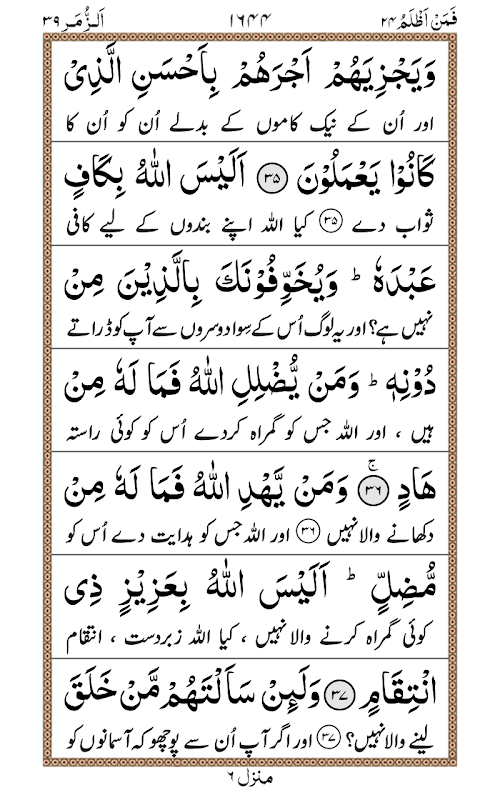 فَمَنْ اَظْلَمُ ٢٤ ١٦٤٤ اَلزُّمَر ٣٩
وَيَجْزِيَهُمْ اَجْرَهُمْ بِاَحْسَنِ الَّذِىْ
اور اُن کے نیک کاموں کے بدلے اُن کو اُن کا
كَانُوْا يَعْمَلُوْنَ ٣٥ اَلَيْسَ اللّٰهُ بِكَافٍ
ثواب دے ٣٥ کیا اللہ اپنے بندوں کے لیے کافی
عَبْدَهٗ ؕ وَيُخَوِّفُوْنَكَ بِالَّذِيْنَ مِنْ
نہیں ہے؟ اور یہ لوگ اُس کے سوا دوسروں سے آپ کو ڈراتے
دُوْنِهٖ ؕ وَمَنْ يُّضْلِلِ اللّٰهُ فَمَا لَهٗ مِنْ
ہیں ، اور اللہ جس کو گمراہ کردے اُس کو کوئی راستہ
هَادٍ ۚ ٣٦ وَمَنْ يَّهْدِ اللّٰهُ فَمَا لَهٗ مِنْ
دکھانے والا نہیں ٣٦ اور اللہ جس کو ہدایت دے اُس کو
مُّضِلٍّ ؕ اَلَيْسَ اللّٰهُ بِعَزِيْزٍ ذِى
کوئی گمراہ کرنے والا نہیں ، کیا اللہ زبردست ، انتقام
انْتِقَامٍ ٣٧ وَلَىِٕنْ سَاَلْتَهُمْ مَّنْ خَلَقَ
لینے والا نہیں؟ ٣٧ اور اگر آپ اُن سے پوچھو کہ آسمانوں کو
منزل ٦